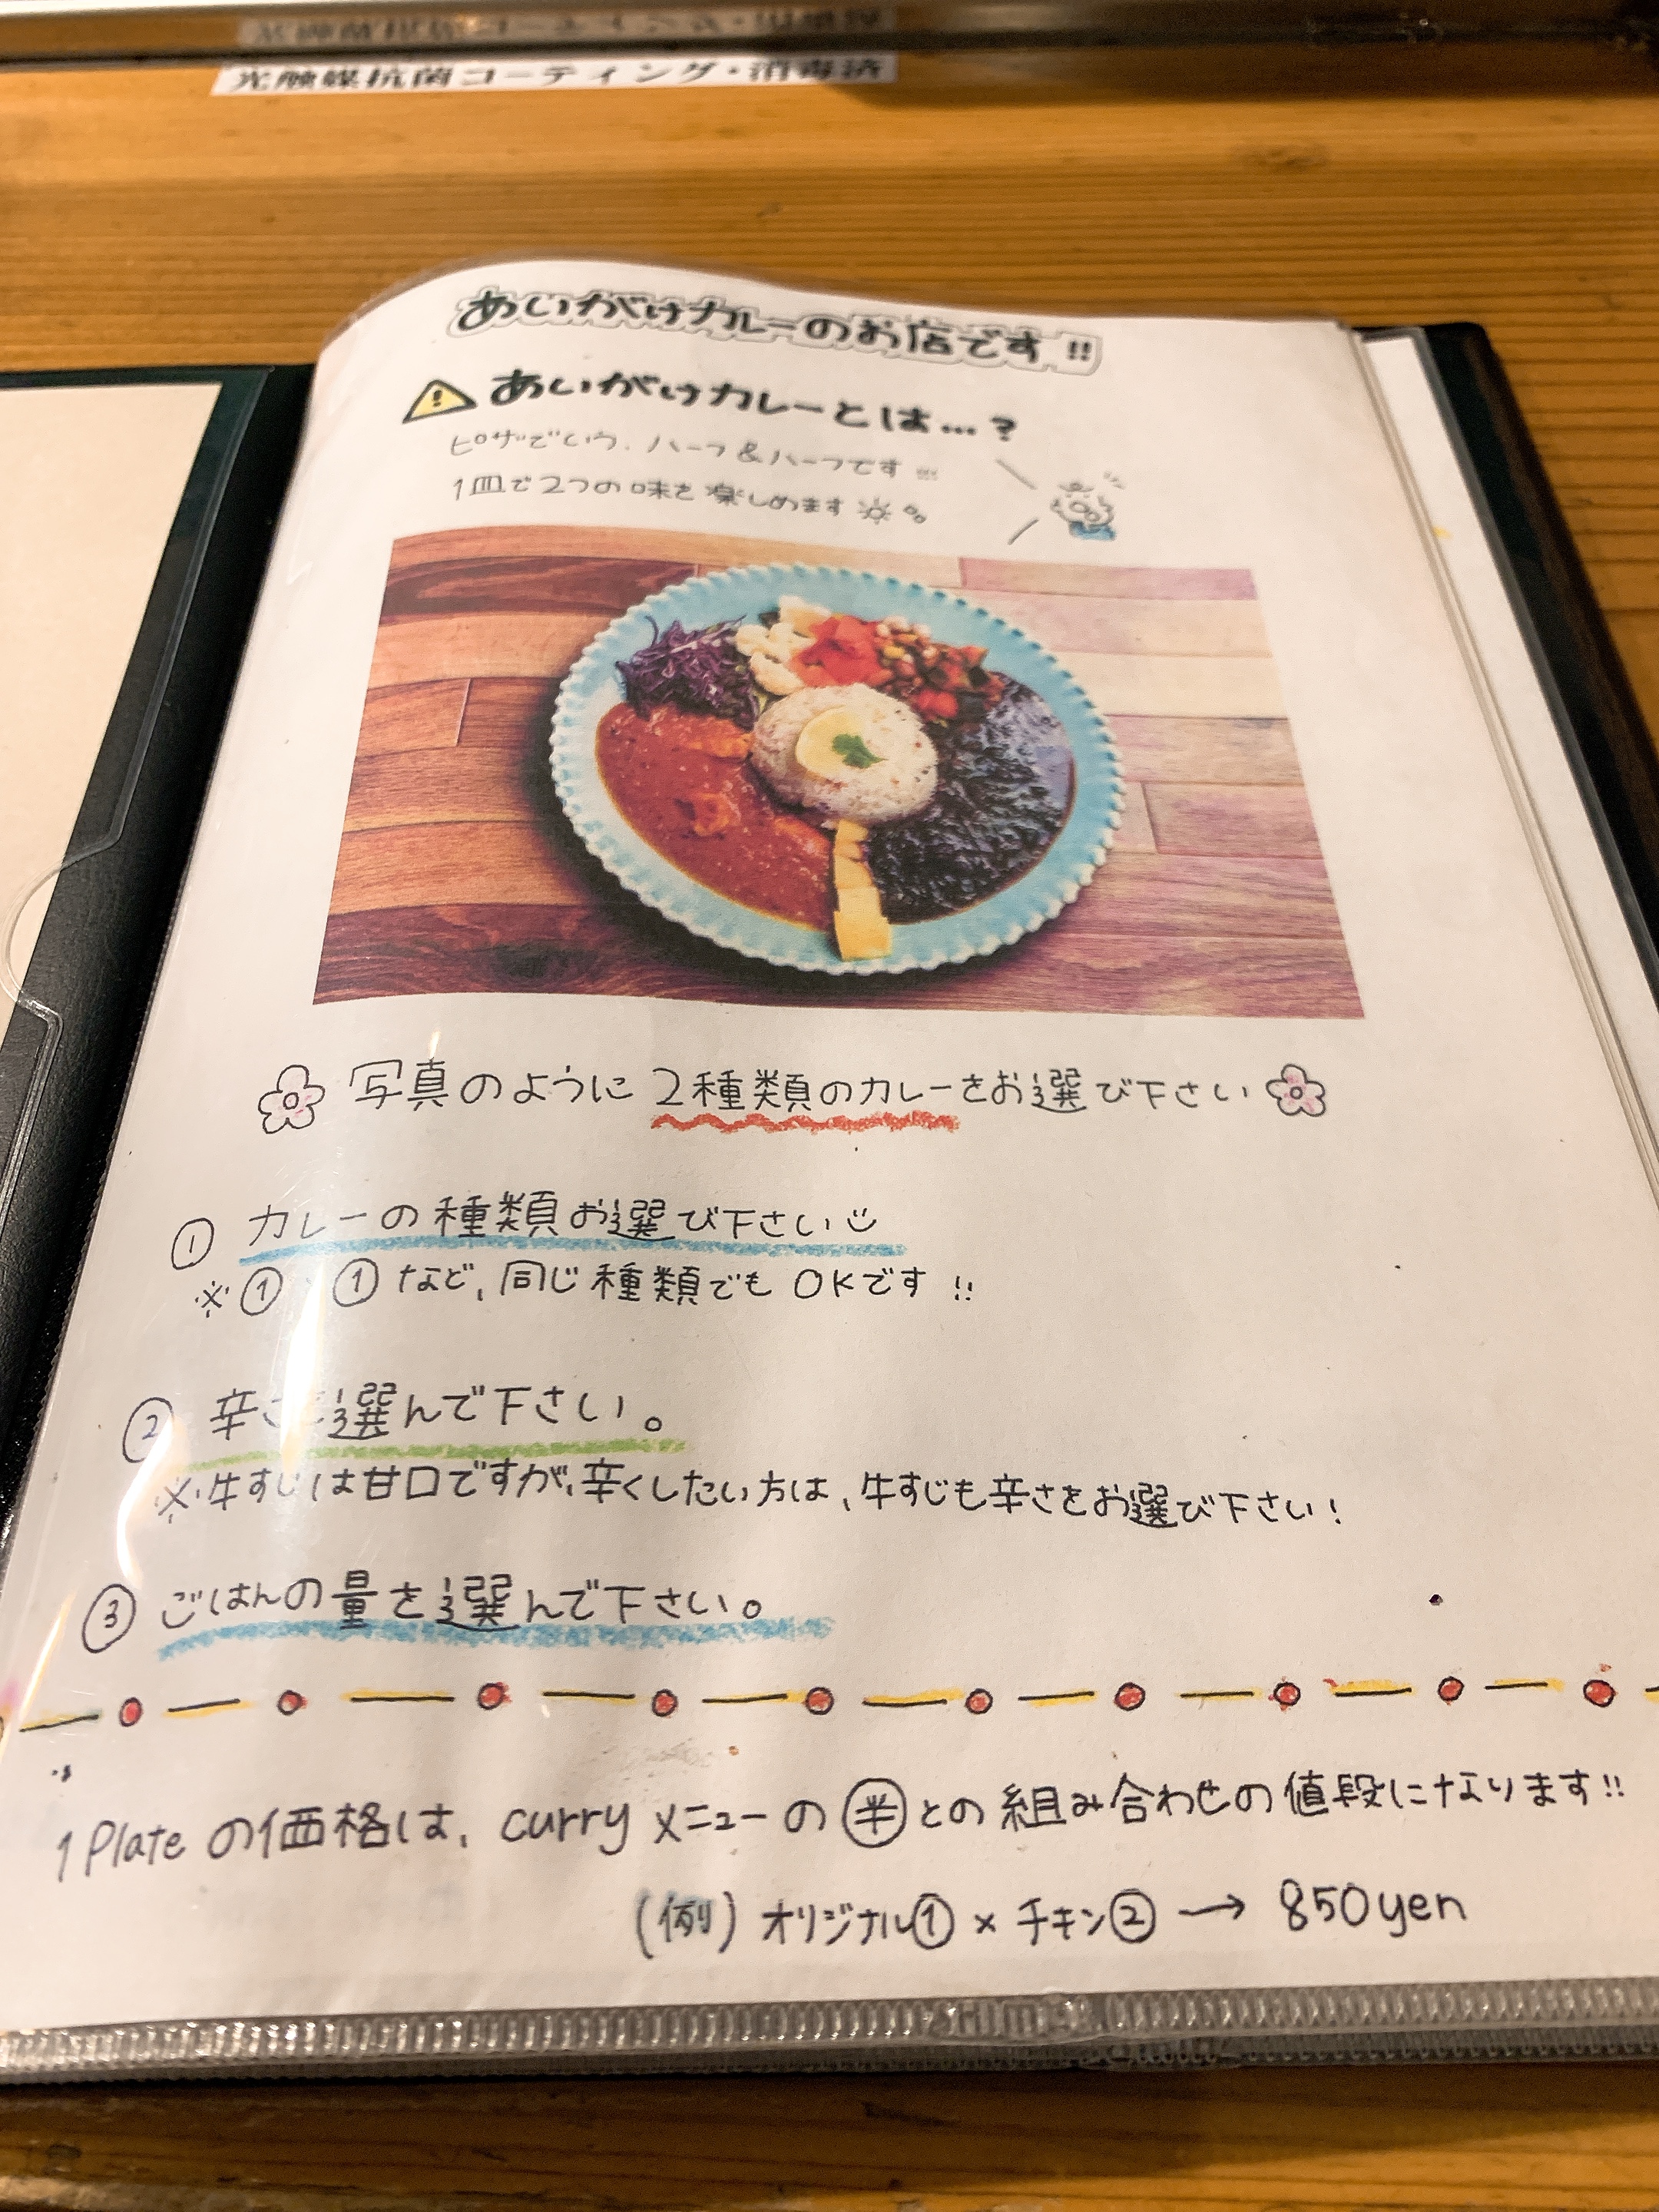 光触媒抗菌コーティング・消毒済
あいがけカレーのお店です!!
あいがけカレーとは…?
ピザでいう、ハーフ&ハーフです!!!
1皿で2つの味を楽しめます
写真のように2種類のカレーをお選び下さい
① カレーの種類お選び下さい
※①×①など、同じ種類でもOKです!!
② 辛さを選んで下さい。
※牛すじは甘口ですが、辛くしたい方は、牛すじも辛さをお選び下さい!
③ ごはんの量を選んで下さい。
1Plateの価格は、curryメニューの㊥との組み合わせの値段になります!!
(例) オリジナル① × チキン② → 850yen